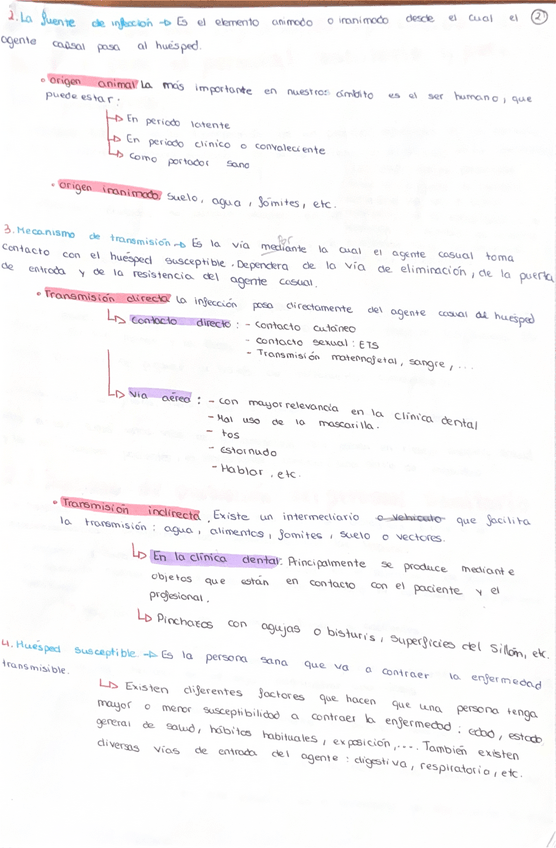 2. La fuente de infección → Es el elemento animado o inanimado desde el cual el ②
agente causal pasa al huésped.
• origen animal La más importante en nuestros ámbito es el ser humano, que
puede estar:
↳ En periodo latente
↳ En periodo clínico o convaleciente
↳ Como portador sano
• origen inanimado. Suelo, agua, fómites, etc.
3. Mecanismo de transmisión → Es la vía mediante por la cual el agente casual toma
contacto con el huésped susceptible. Dependerá de la vía de eliminación, de la puerta
de entrada y de la resistencia del agente casual.
• Transmisión directa La infección pasa directamente del agente casual al huésped
↳ Contacto directo: - contacto cutáneo
- contacto sexual: ETS
- Transmisión maternofetal, sangre, ...
↳ Vía aérea: - con mayor relevancia en la clínica dental
- Mal uso de la mascarilla.
- tos
- estornudo
- Hablar, etc.
• Transmisión indirecta. Existe un intermediario o vehículo que facilita
la transmisión: agua, alimentos, fomites, suelo o vectores.
↳ En la clínica dental: Principalmente se produce mediante
objetos que están en contacto con el paciente y el
profesional.
↳ Pinchazos con agujas o bisturis, superficies del sillón, etc.
4. Huésped susceptible → Es la persona sana que va a contraer la enfermedad
transmisible.
↳ Existen diferentes factores que hacen que una persona tenga
mayor o menor susceptibilidad a contraer la enfermedad: edad, estado
general de salud, hábitos habituales, exposición, .... También existen
diversas vías de entrada del agente: digestiva, respiratoria, etc.